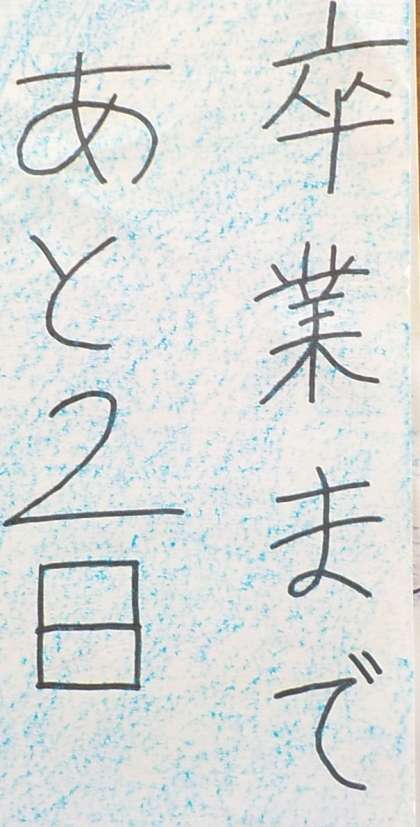 卒業まで
あと2日